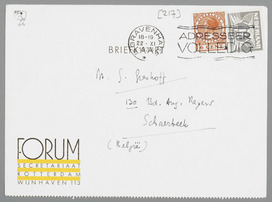 [217]
'S GRAVENHAGE
18-19
22.XI
ADRESSEER
VOLLEDIG
BRIEFKAART
M. S.
120 Bd. Aug. Reyers
Schaerbeek
(België)
FORUM
SECRETARIAAT
ROTTERDAM
WIJNHAVEN 113